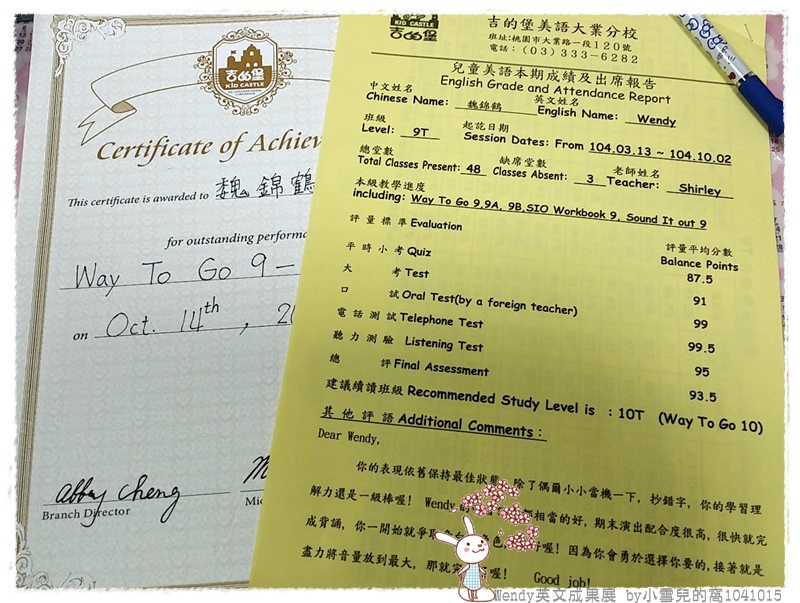 吉的堡
KID CASTLE
Certificate of Achiev
This certificate is awarded to 魏 錦 鶴
for outstanding performa
Way To Go 9 -
on Oct. 14th , 2
Abby Cheng
Branch Director
Mic
吉的堡
吉的堡美語大業分校
班址:桃園市大業路一段120號
電話:(03)333-6282
兒童美語本期成績及出席報告
English Grade and Attendance Report
中文姓名 英文姓名
Chinese Name: 魏錦鶴 English Name: Wendy
班級 起訖日期
Level: 9T Session Dates: From 104.03.13 ~ 104.10.02
總堂數 缺席堂數 老師姓名
Total Classes Present: 48 Classes Absent: 3 Teacher: Shirley
本級教學進度
including: Way To Go 9,9A, 9B,SIO Workbook 9, Sound It out 9
評 量 標 準 Evaluation 評量平均分數
Balance Points
平 時 小 考 Quiz 87.5
大 考 Test 91
口 試 Oral Test(by a foreign teacher) 99
電 話 測 試 Telephone Test 99.5
聽 力 測 驗 Listening Test 95
總 評 Final Assessment 93.5
建議續讀班級 Recommended Study Level is : 10T (Way To Go 10)
其 他 評 語 Additional Comments :
Dear Wendy,
你的表現依舊保持最佳狀態, 除了偶爾小小當機一下, 抄錯字, 你的學習理
解力還是一級棒喔! Wendy 相當的好, 期末演出配合度很高, 很快就完
成背誦, 你一開始就爭取 喔! 因為你會勇於選擇你要的,接著就是
盡力將音量放到最大, 那就完 喔! Good job!
Wendy英文成果展 by小雪兒的窩1041015